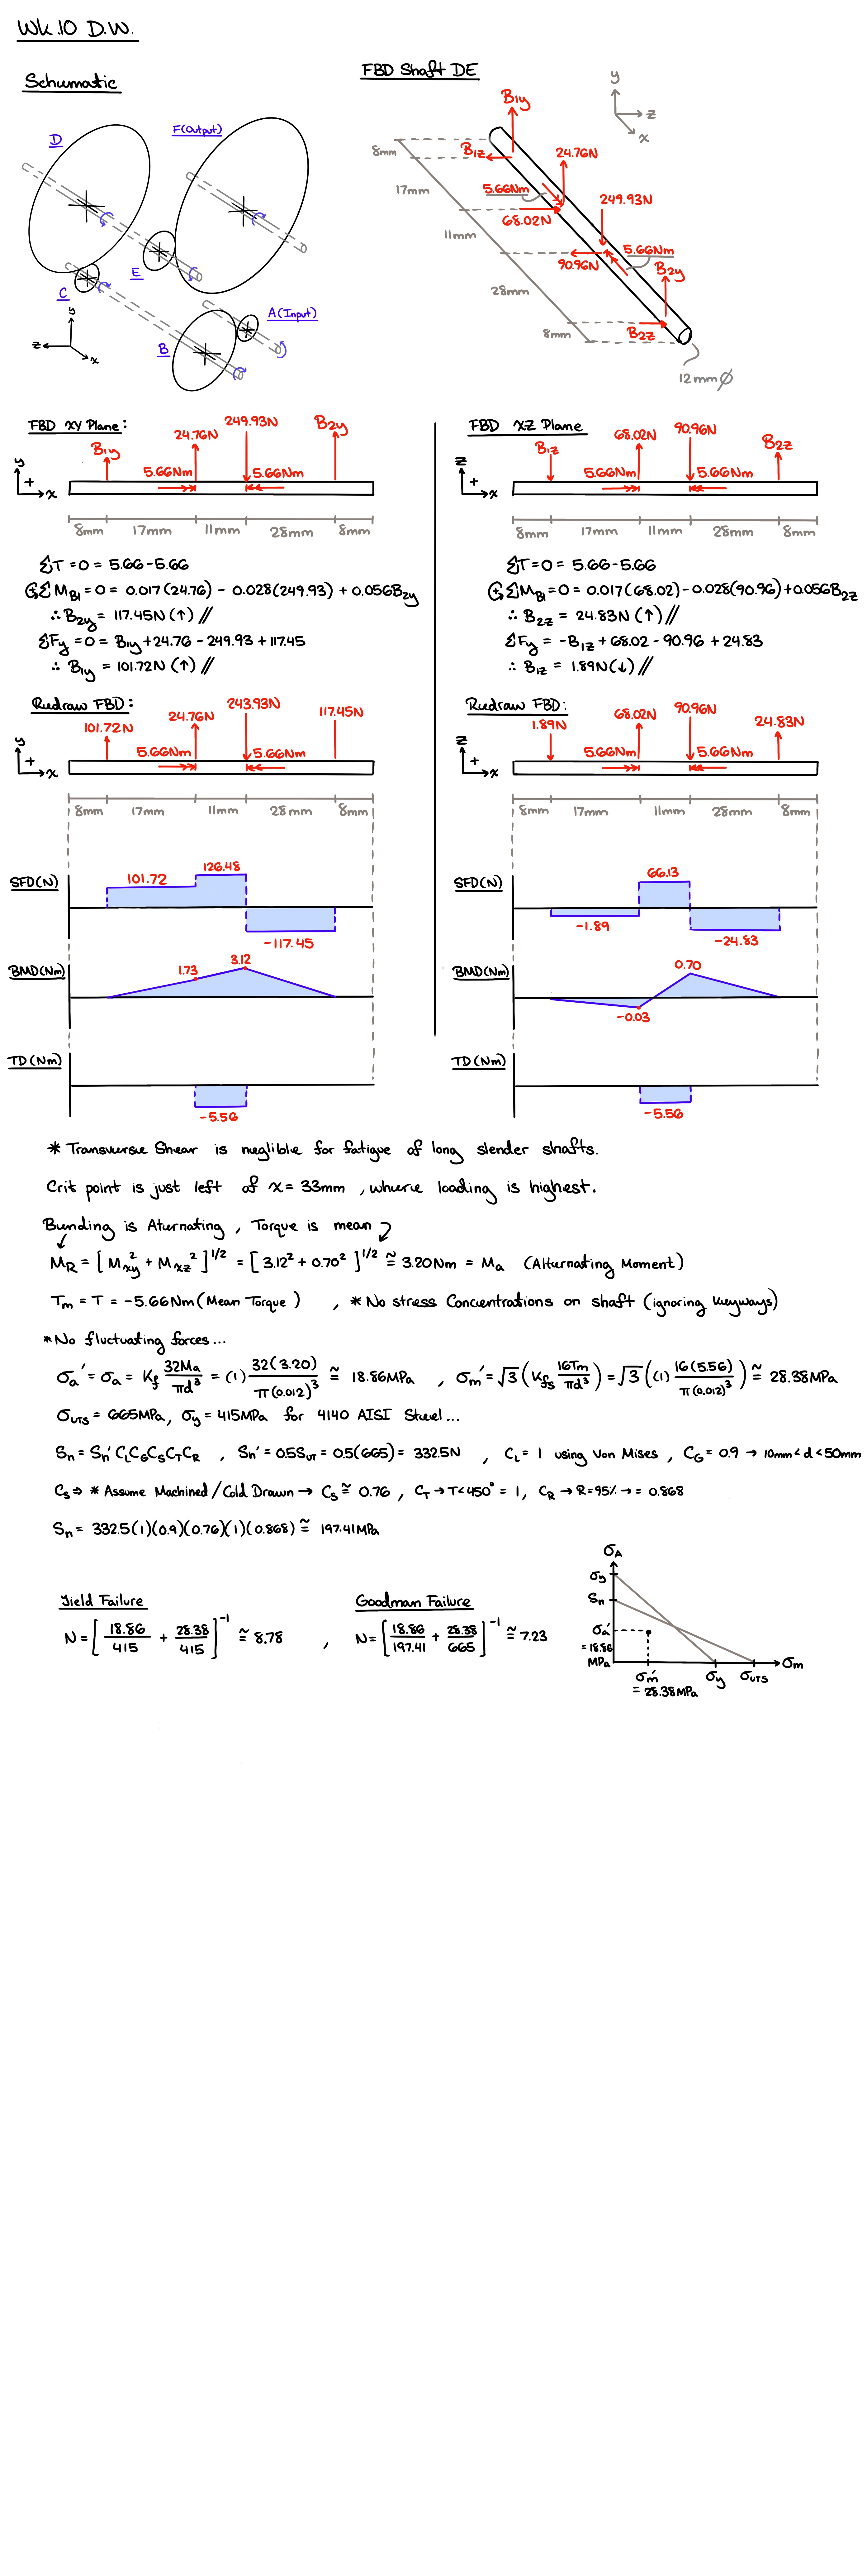 Wk.10 D.W.
Schematic
D
F(Output)
E
C
A(Input)
B
y
z
x
FBD Shaft DE
y
z
x
B1y
8mm
B1z
24.76N
17mm
5.66Nm
249.93N
68.02N
11mm
5.66Nm
90.96N
B2y
28mm
8mm
B2z
12mmØ
FBD xy Plane:
249.93N
24.76N
B2y
B1y
5.66Nm
5.66Nm
y
+
x
8mm 17mm 11mm 28mm 8mm
ΣT=0 = 5.66-5.66
ΣMB1=0 = 0.017(24.76) - 0.028(249.93) + 0.056B2y
∴ B2y = 117.45N (↑) //
ΣFy =0= B1y+24.76 -249.93+117.45
∴ B1y = 101.72N (↑) //
Redraw FBD:
243.93N
24.76N
117.45N
101.72N
5.66Nm
5.66Nm
y
+
x
8mm 17mm 11mm 28mm 8mm
SFD(N)
101.72
126.48
-117.45
BMD(Nm)
1.73
3.12
TD(Nm)
-5.56
FBD xz Plane
68.02N
90.96N
B1z
B2z
5.66Nm
5.66Nm
z
+
x
8mm 17mm 11mm 28mm 8mm
ΣT=0 = 5.66-5.66
ΣMB1=0= 0.017(68.02)-0.028(90.96)+0.056B2z
∴ B2z = 24.83N (↑) //
ΣFy = -B1z + 68.02 - 90.96 + 24.83
∴ B1z = 1.89N(↓) //
Redraw FBD:
68.02N
90.96N
1.89N
24.83N
5.66Nm
5.66Nm
z
+
x
8mm 17mm 11mm 28mm 8mm
SFD(N)
66.13
-1.89
-24.83
BMD(Nm)
0.70
-0.03
TD(Nm)
-5.56
* Transverse Shear is neglible for fatigue of long slender shafts.
Crit point is just left of x= 33mm , where loading is highest.
Bending is Aturnating , Torque is mean
MR = [Mxy² + Mxz²]^1/2 = [3.12² + 0.70²]^1/2 ≅ 3.20Nm = Ma (Alternating Moment)
Tm = T = -5.66Nm (Mean Torque) , * No stress Concentrations on shaft (ignoring keyways)
*No fluctuating forces...
σa' = σa = Kf 32Ma/πd³ = (1) 32(3.20)/π(0.012)³ ≅ 18.86MPa , σm' = √3 (Kfs 16Tm/πd³) = √3 ((1) 16(5.56)/π(0.012)³) ≅ 28.38MPa
σUTS = 665MPa, σy = 415MPa for 4140 AISI Steel...
Sn = Sn' CLCGCSCTCR , Sn' = 0.5SUT = 0.5(665) = 332.5N , CL = 1 using Von Mises , CG = 0.9 → 10mm<d<50mm
CS ⇒ * Assume Machined/Cold Drawn → CS ≅ 0.76 , CT → T<450° = 1, CR → R=95% → = 0.868
Sn = 332.5(1)(0.9)(0.76)(1)(0.868) ≅ 197.41MPa
Yield Failure
N = [18.86/415 + 28.38/415]⁻¹ ≅ 8.78 ,
Goodman Failure
N= [18.86/197.41 + 28.38/665]⁻¹ ≅ 7.23
σA
σy
Sn
σa
= 18.86
MPa
σm
σm'
= 28.38MPa
σy
σUTS